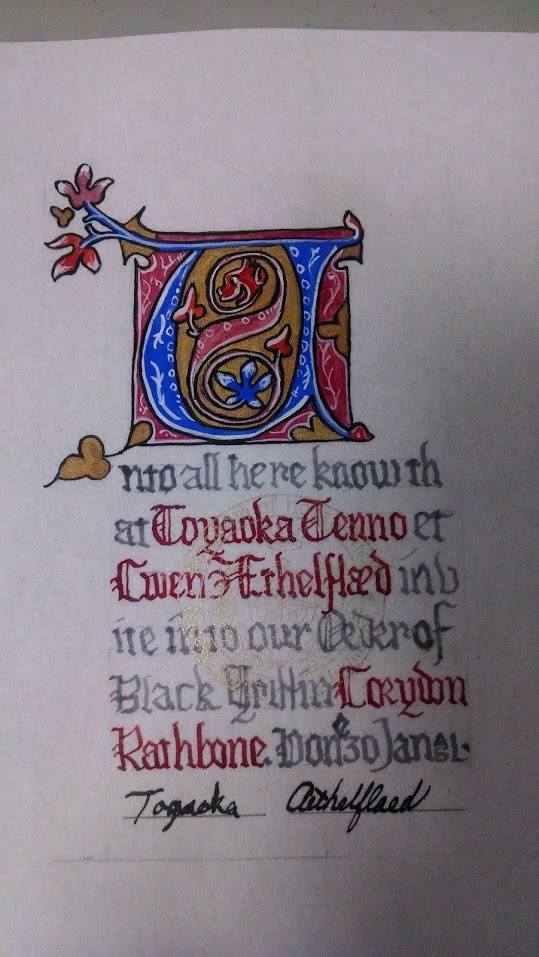 Unto all here know th
at Toyaoka Tenno et
Cwen Æthelflæd inv
ite into our Order of
Black Griffin Corydon
Rathbone. Done 30 Jan asL.
Toyaoka Aethelflaed